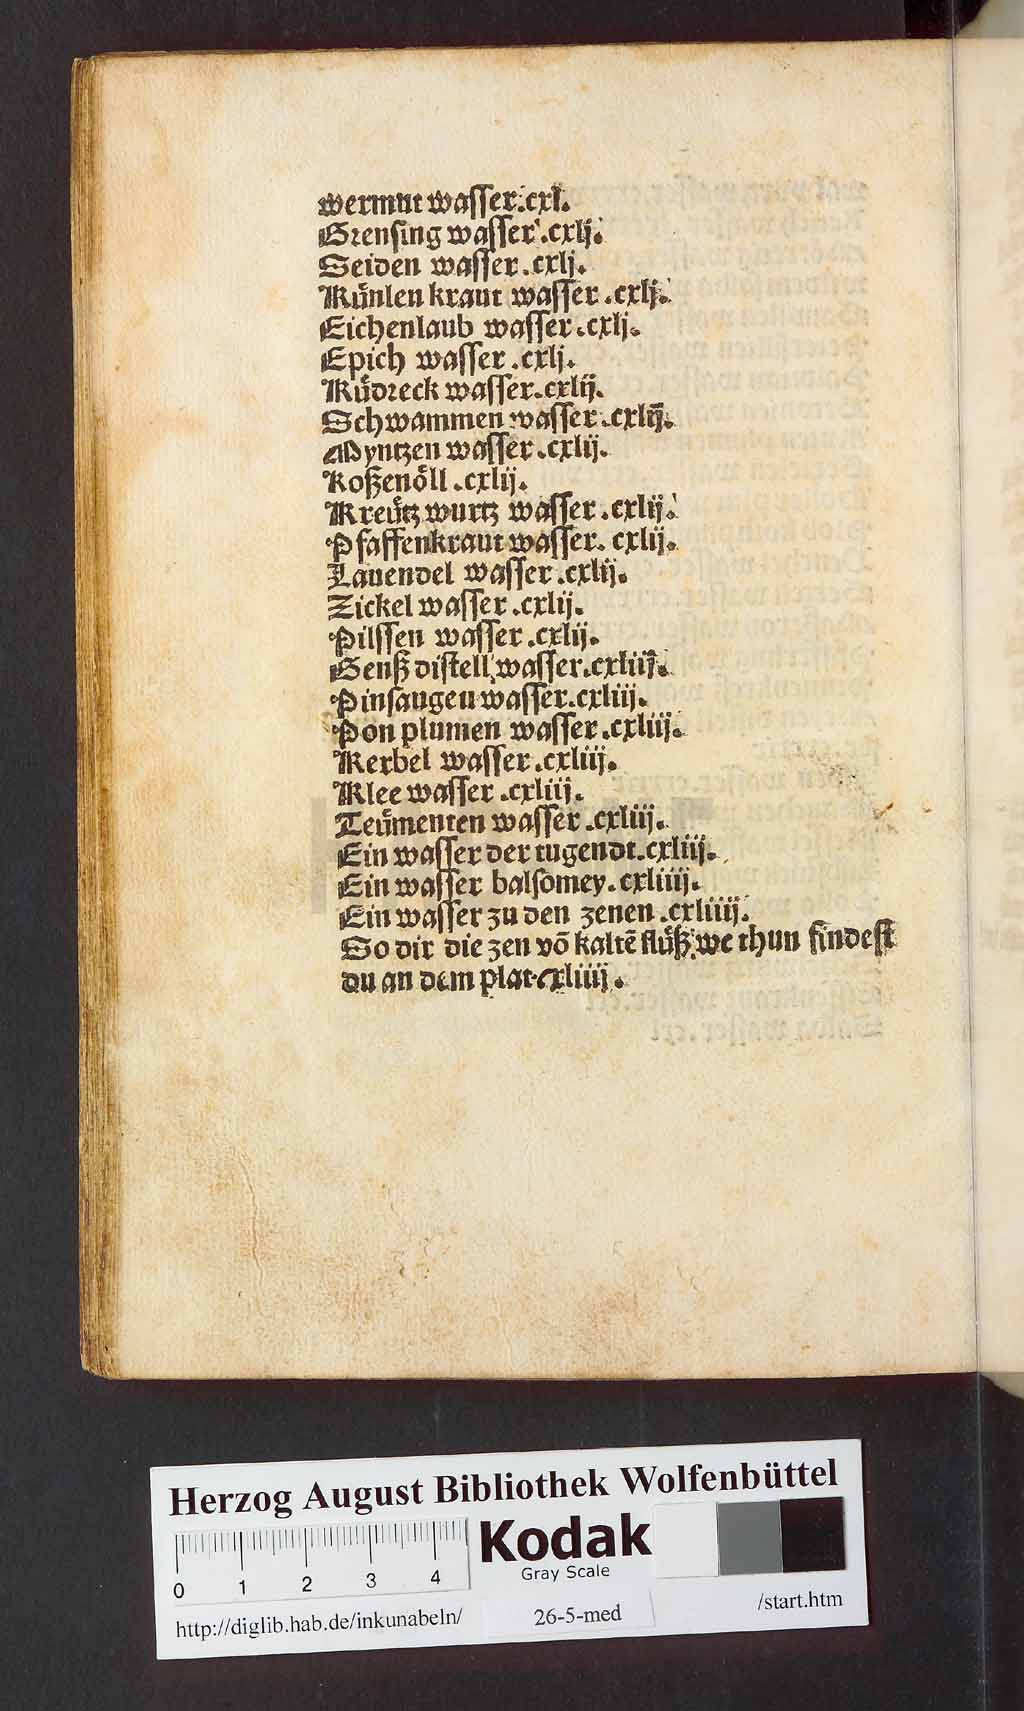 wermut wasser.cxl.
Grensing wasser.cxlj.
Seiden wasser.cxlj.
Kůnlen kraut wasser.cxlj.
Eichenlaub wasser.cxlj.
Epich wasser.cxlj.
Kůdreck wasser.cxlij.
Schwammen wasser.cxlij.
Myntzen wasser.cxlij.
Roßenöll.cxlij.
Kreütz wurtz wasser.cxlij.
Pfaffenkraut wasser.cxlij.
Lauendel wasser.cxlij.
Zickel wasser.cxlij.
Pilssen wasser.cxlij.
Genß distell wasser.cxliij.
Pinsaugen wasser.cxliij.
Pon plumen wasser.cxliij.
Kerbel wasser.cxliij.
Klee wasser.cxliij.
Teümenten wasser.cxliij.
Ein wasser der tugendt.cxliij.
Ein wasser balsomey.cxliiij.
Ein wasser zu den zenen.cxliiij.
So dir die zen võ kaltẽ flüß we thun findest
du an dem plat.cxliiij.
Herzog August Bibliothek Wolfenbüttel
Kodak
Gray Scale
0 1 2 3 4
http://diglib.hab.de/inkunabeln/ 26-5-med /start.htm